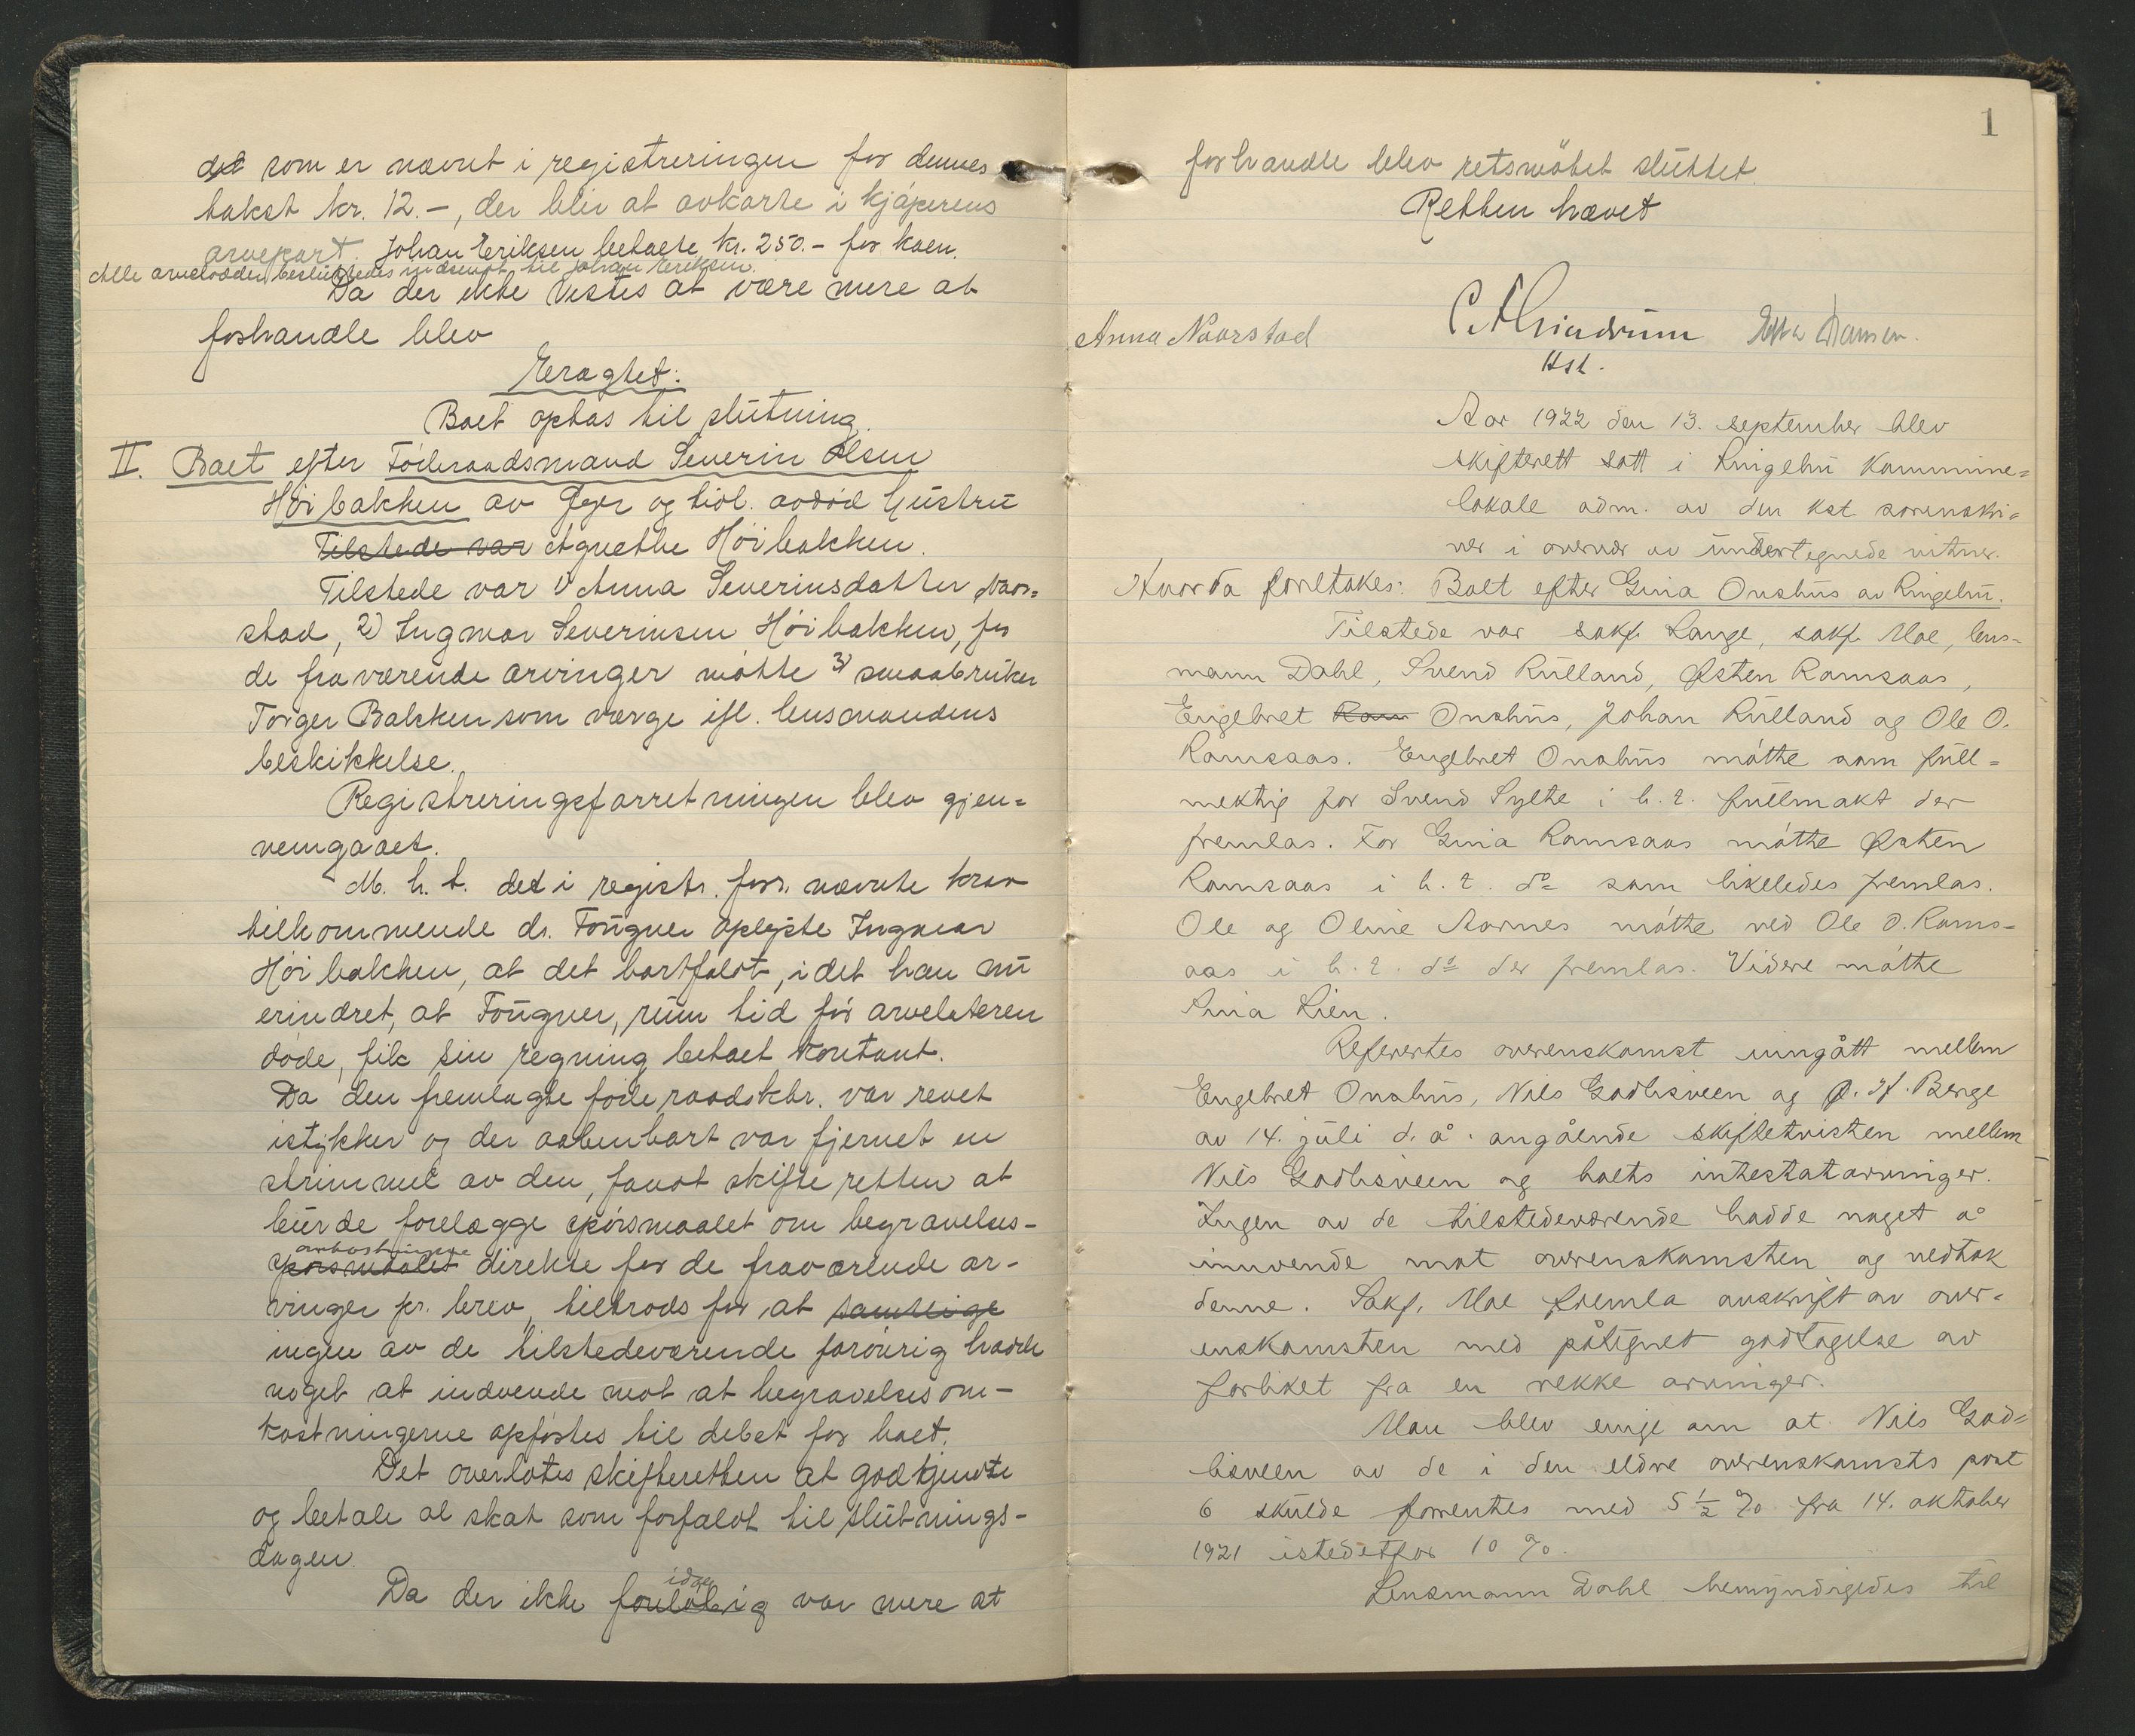 det som er nævnt i registreringen for dennes
takst kr. 12.-, der blir at avkorte i kjøperens
arvepart. Johan Eriksen betalte kr. 250.- for koen.
Alle arvelodder besluttedes indsendt til Johan Eriksen.
Da der ikke vistes at være mere at
forhandle blev
Eragtet:
Boet optas til slutning.
II. Boet efter Föderaadsmand Severin Olsen
Höibakken av Øyer og tidl. avdöd hustru
Tilstede var Agnethe Höibakken.
Tilstede var 1) Anna Severinsdatter Naor-
stad, 2) Ingmar Severinsen Höibakken, for
de fraværende arvinger mötte 3) smaabruker
Torger Bakken som værge ifl. lensmandens
beskikkelse.
Registreringsforretningen blev gjen-
nemgaaet.
M. h. t. det i registr. forr. nævnte krav
tilkommende dr. Tougner oplyste Ingmar
Höibakken, at det bortfaldt, idet han nu
erindret, at Tougner, rum tid för arvelateren
döde, fik sin regning betalt kontant.
Da den fremlagte föderaadskbr. var revet
istykker og der aabenbart var fjernet en
strimmel av den, fandt skifteretten at
burde forelægge spörsmaalet om begravelses-
omkostningene
spörsmaalet direkte for de fraværende ar-
vinger pr. brev, tiltrods for at samtlige
ingen av de tilstedeværende forövrig hadde
noget at indvende mot at begravelsesom-
kostningerne opförtes til debet for boet.
Det overlotes skifteretten at godkjende
og betale al skat som forfaldt til slutnings-
dagen.
idag
Da der ikke forelöbig var mere at
1
forhandle blev retsmötet sluttet.
Retten hævet
Anna Naorstad
Hst.
Aar 1922 den 13. september blev
skifterett satt i Ringebu Kommune-
lokale adm. av den kst. sorenskri-
ver i overvær av undertegnede vitner.
Hvorda foretokes: Boet efter Gina Onshus av Ringebu.
Tilstede var sakf. Lange, sakf. Moe, lens-
mann Dahl, Svend Rulland, Østen Ramsaas,
Engebret Ram Onshus, Johan Rulland og Ole O.
Ramsaas. Engebret Onshus mötte som full-
mektig for Svend Sylte i h. t. fullmakt der
fremlas. For Gina Ramsaas mötte Østen
Ramsaas i h. t. do som likeledes fremlas.
Ole og Oline Aarnes mötte ved Ole O. Rams-
aas i h. t. do der fremlas. Videre mötte
Lina Lien.
Refertes overenskomst inngått mellem
Engebret Onshus, Nils Godlisveen og O. H. Berge
av 14. juli d. å. angående skiftetvisten mellem
Nils Godlisveen og boets intestatarvinger.
Ingen av de tilstedeværende hadde noget å
innvende mot overenskomsten og vedtok
denne. Sakf. Moe fremla avskrift av over-
enskomsten med påtegnet godtagelse av
forliket fra en rekke arvinger.
Man blev enige om at Nils God-
lisveen av de i den eldre overenskomsts post
6 skulde forrentes med 5 1/2 % fra 14. oktober
1921 istedetfor 10 %.
Lensmann Dahl bemyndigedes til